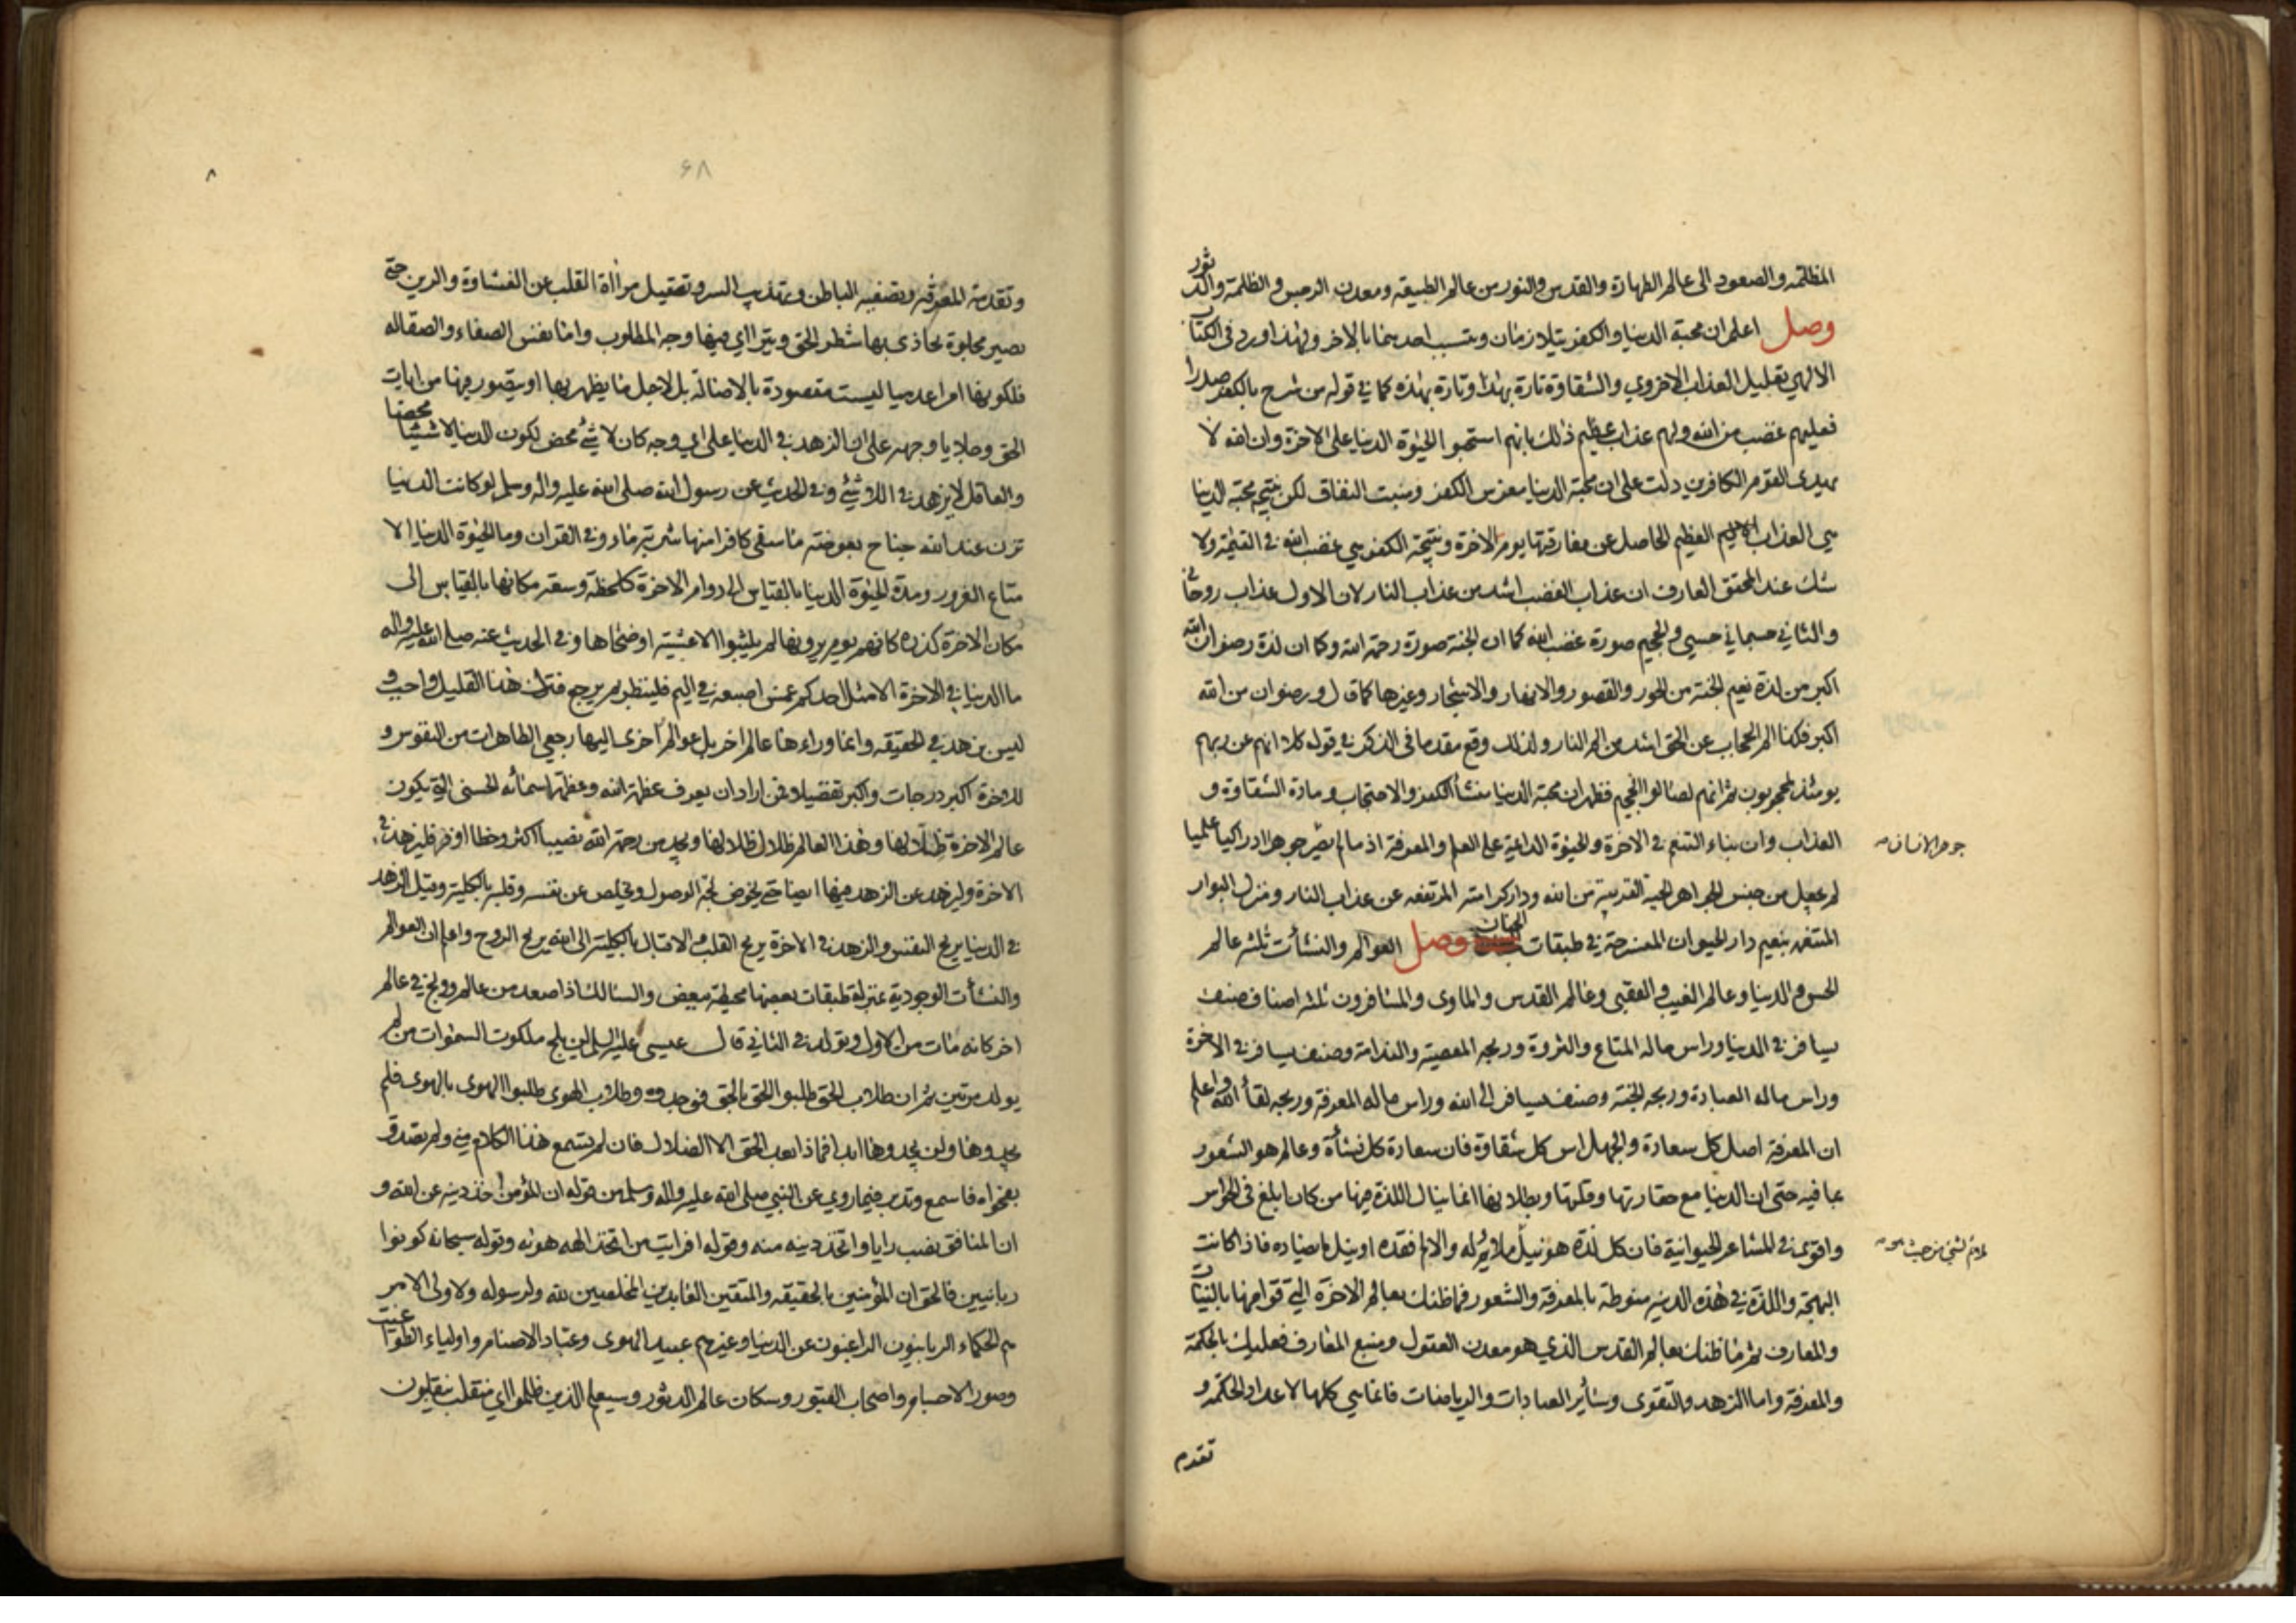 المظلمة والصعود الى عالم الطهارة والقدس والنور من عالم الطبيعة ومعدن الرجس والظلمة والدثور
وصل اعلم ان محبة الدنيا والكفر يتلازمان ويتسبب احدهما بالاخر ولهذا ورد فى الكتاب
الالهي تعليل العذاب الاخروي والشقاوة تارة بهذا وتارة بهذه كما في قوله من شرح بالكفر صدرا
فعليهم غضب من الله ولهم عذاب عظيم ذلك بانهم استحبوا الحيوة الدنيا على الاخرة وان الله لا
يهدى القوم الكافرين دلت على ان محبة الدنيا مغرس الكفر ومنبت النفاق لكن نتيجة محبة الدنيا
هي العذاب الاليم العظيم الحاصل عن مفارقتها يوم الاخرة ونتيجة الكفر هي غضب الله في القيمة ولا
شك عند المحقق العارف ان عذاب الغضب اشد من عذاب النار لان الاول عذاب روحاني
والثاني جسماني حسي والجحيم صورة غضب الله كما ان الجنة صورة رحمة الله وكما ان لذة رضوان الله
اكبر من لذة نعيم الجنة من الحور والقصور والانهار والاشجار وغيرها كما قال ورضوان من الله
اكبر فكذا الم الحجاب عن الحق اشد من الم النار ولذلك وقع مقدما فى الذكر في قوله كلا انهم عن ربهم
يومئذ لمحجوبون ثم انهم لصالوا الجحيم فظهر ان محبة الدنيا منشأ الكفر والاحتجاب ومادة الشقاوة و
العذاب وان بناء التنعم في الاخرة والحيوة الدائمة على العلم والمعرفة اذ ما لم يصر جوهرا ادراكيا علميا
جوهر الانسان
لم يحصل من جنس الجواهر الحية القريبة من الله ودار كرامته المرتفعة عن عذاب النار ومنزل البوار
المتنعمة بنعيم دار الحيوان المنشرحة في طبقات الجنان وصل العوالم والنشأت ثلثة عالم
الحس والدنيا وعالم الغيب والعقبى وعالم القدس والماوى والمسافرون ثلثة اصناف صنف
يسافر في الدنيا وراس ماله المتاع والثروة وربحه المعصية والندامة وصنف يسافر في الاخرة
وراس ماله العبادة وربحه الجنة وصنف يسافر الى الله وراس ماله المعرفة وربحه لقاء الله واعلم
ان المعرفة اصل كل سعادة والجهل اس كل شقاوة فان سعادة كل نشأة وعالم هو الشعور
بما فيه حتى ان الدنيا مع حقارتها وقلتها وبطلانها انما ينال اللذة منها من كان ابلغ فى الحواس
واقوى في المشاعر الحيوانية فان كل لذة هو نيل ملائم له والالم فقده او نيل ما يضاده فاذا كانت
البهجة واللذة في هذه الدنية منوطة بالمعرفة والشعور فما ظنك بعالم الاخرة التي قوامها بالنيات
والمعارف ثم ما ظنك بعالم القدس الذي هو معدن العقول ومنبع المعارف فعليك بالحكمة
والمعرفة واما الزهد والتقوى وسائر العبادات والرياضات فانما هي كلها لاعداد الحكمة و
تقدم
۶۸
۸
وتقدمة المعرفة وتصفية الباطن وتهذيب السر وتصقيل مرأاة القلب عن الغشاوة والرين حتى
تصير مجلوة يحاذى بها شطر الحق ويترااى فيها وجه المطلوب واما نفس الصفاء والصقالة
فلكونها امرا عدميا ليست مقصودة بالاصالة بل لاجل ما يظهر بها او يتصور فيها من ايات
الحق وجلايا وجهه على ان الزهد في الدنيا على اي وجه كان لا شئ محض لكون الدنيا لا شيئا محضا
والعاقل لا يزهد في اللاشئ وفي الحديث عن رسول الله صلى الله عليه واله وسلم لو كانت الدنيا
تزن عند الله جناح بعوضة ما سقى كافرا منها شربة ماء وفي القران وما الحيوة الدنيا الا
متاع الغرور ومدة الحيوة الدنيا بالقياس الى دوام الاخرة كلحظة وسعة مكانها بالقياس الى
مكان الاخرة كذرة كانهم يوم يرونها لم يلبثوا الا عشية او ضحاها وفي الحديث عنه صلى الله عليه واله
ما الدنيا في الاخرة الا مثل احدكم غمس اصبعه في اليم فلينظر بم يرجع فترك هذا القليل واجب و
ليس بزهد في الحقيقة وانما وراء هنا عالم اخر بل عوالم اخرى اليها رجعى الطاهرات من النفوس و
للاخرة اكبر درجات واكبر تفضيلا ومن اراد ان يعرف عظمة الله وعظمة اسمائه الحسنى التي يكون
عالم الاخرة ظلالها وهذا العالم ظلال ظلالها ويجد من رحمة الله نصيبا اكثر وحظا اوفر فليزهد في
الاخرة وليزهد عن الزهد فيها ايضا حتى يخوض لجة الوصول ويخلص عن نفسه وقلبه بالكلية وقيل الزهد
في الدنيا يريح النفس والزهد في الاخرة يريح القلب والاقبال بالكلية الى الله يريح الروح واعلم ان العوالم
والنشأت الوجودية بمنزلة طبقات بعضها محيطة ببعض والسالك اذا صعد من عالم وولج في عالم
اخر كانه مات من الاول وتولد في الثاني قال عيسى عليه السلام لن يلج ملكوت السموات من لم
يولد مرتين ثم ان طلاب الحق طلبوا الحق بالحق فوجدوه وطلاب الهوى طلبوا الهوى بالهوى فلم
يجدوها ولن يجدوها ابدا فماذا بعد الحق الا الضلال فان لم تسمع هذا الكلام مني ولم تصدق
بفحواه فاسمع وتدبر فيما روي عن النبي صلى الله عليه واله وسلم من قوله ان المؤمن اخذ دينه عن الله و
ان المنافق نصب رايا واتخذ دينه منه وقوله افرايت من اتخذ الهه هوئه وقوله سبحانه كونوا
ربانيين فالحق ان المؤمنين بالحقيقة والمتقين العابدين المخلصين لله ولرسوله ولاولى الامر
هم الحكماء الربانيون الراغبون عن الدنيا وغيرهم عبيد الهوى وعباد الاصنام واولياء الطواغيت
وصور الاجسام واصحاب القبور وسكان عالم الدثور وسيعلم الذين ظلموا اي منقلب ينقلبون